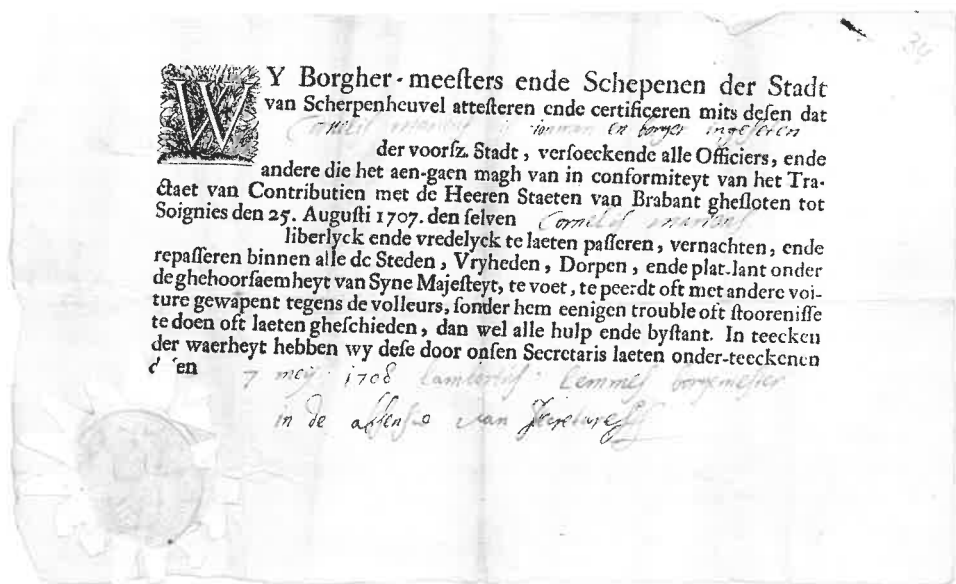 34
WY Borgher-meeſters ende Schepenen der Stadt
van Scherpenheuvel atteſteren ende certificeren mits deſen dat
en borger ingeseten
der voorſz. Stadt, verſoeckende alle Officiers, ende
andere die het aen-gaen magh van in conformiteyt van het Tra-
ctaet van Contributien met de Heeren Staeten van Brabant gheſloten tot
Soignies den 25. Auguſti 1707. den ſelven Cornelis
liberlyck ende vredelyck te laeten paſſeren, vernachten, ende
repaſſeren binnen alle de Steden, Vryheden, Dorpen, ende plat-lant onder
de ghehoorſaemheyt van Syne Majeſteyt, te voet, te peerdt oft met andere voi-
ture gewapent tegens de volleurs, ſonder hem eenigen trouble oft ſtooreniſſe
te doen oft laeten gheſchieden, dan wel alle hulp ende byſtant. In teecken
der waerheyt hebben wy deſe door onſen Secretaris laeten onder-teeckenen
7 meij 1708 Lambertus Lemmes borgemester
in de absensie van Secretares